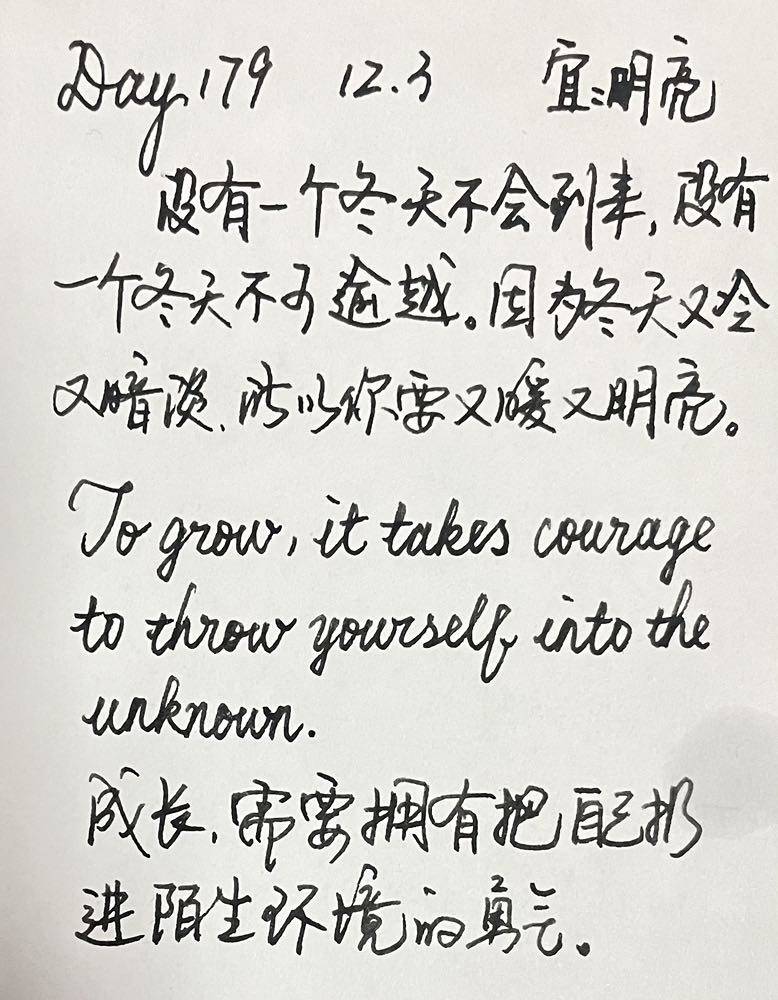 Day 179 12.3 宜:明亮
没有一个冬天不会到来,没有
一个冬天不可逾越。因为冬天又冷
又暗淡,所以你要又暖又明亮。
To grow, it takes courage
to throw yourself into the
unknown.
成长,需要拥有把自己扔
进陌生环境的勇气。